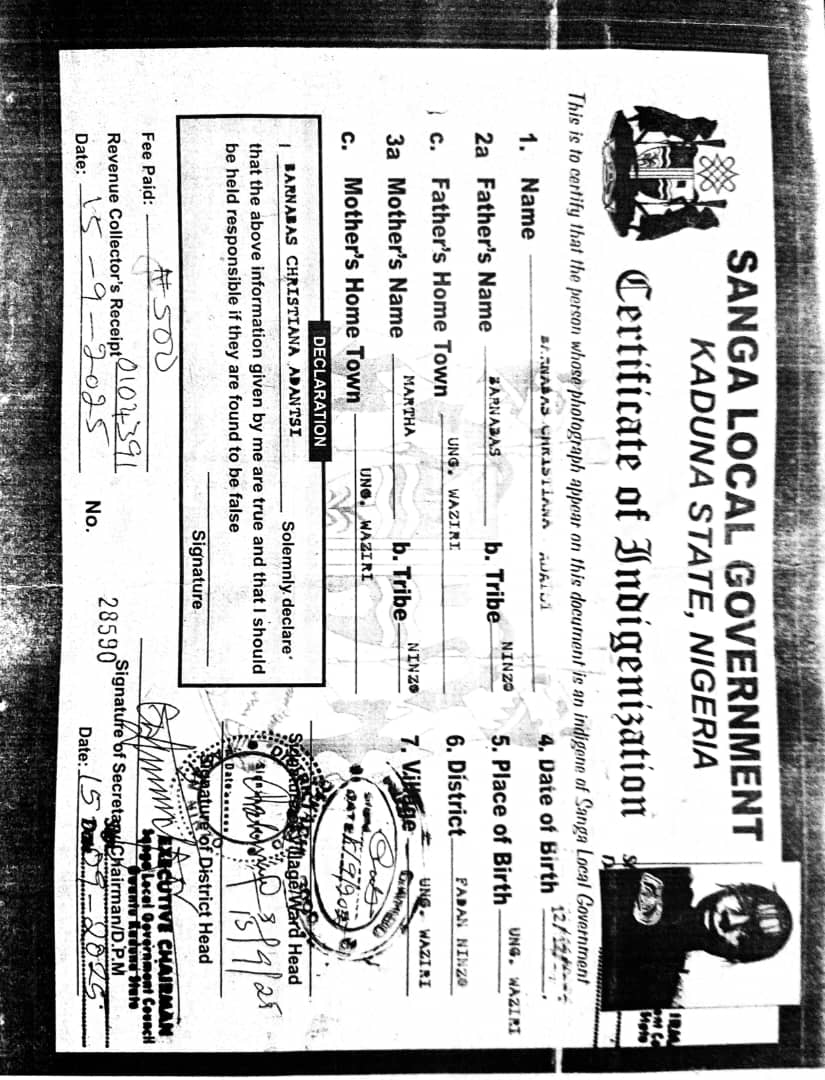 SANGA LOCAL GOVERNMENT
KADUNA STATE, NIGERIA
Certificate of Indigenization
This is to certify that the person whose photograph appear on this document is an indigene of Sanga Local Government
1. Name BARNABAS CHRISTIANA
4. Date of Birth
2a Father's Name BARNABAS b. Tribe NINZO
5. Place of Birth UNG. WAZIRI
c. Father's Home Town UNG. WAZIRI
6. District FADAN NINZO
3a Mother's Name MARTHA b. Tribe NINZO
7. Village UNG. WAZIRI
c. Mother's Home Town UNG. WAZIRI
DECLARATION
I BARNABAS CHRISTIANA ADANTSI Solemnly declare
that the above information given by me are true and that I should
be held responsible if they are found to be false
Signature
Signature of Village/Ward Head
15/9/25
Signature of District Head
Fee Paid: ₦500
Revenue Collector's Receipt 0104391
Date: 15-9-2025
No. 28590
Signature of Secretary/Chairman/D.P.M
Date: 15-09-2025
EXECUTIVE CHAIRMAN
Sanga Local Government Council
Kaduna State